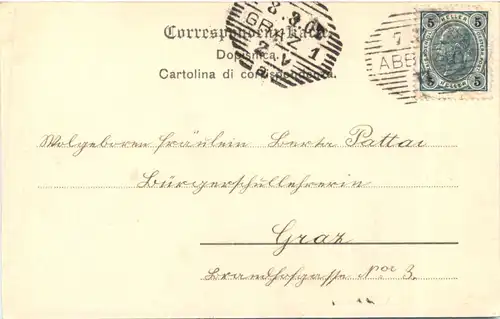 Correspondenz-Karte.
Dopisnica.
Cartolina di corrispondenza.
GRAZ 1
7
ABB
5 HELLER 5
5 HELLER 5
Wolgeboren Fräulein Berta Pattai
Bürgerschullehrerin
Graz
Brandhofgasse Nro 3.